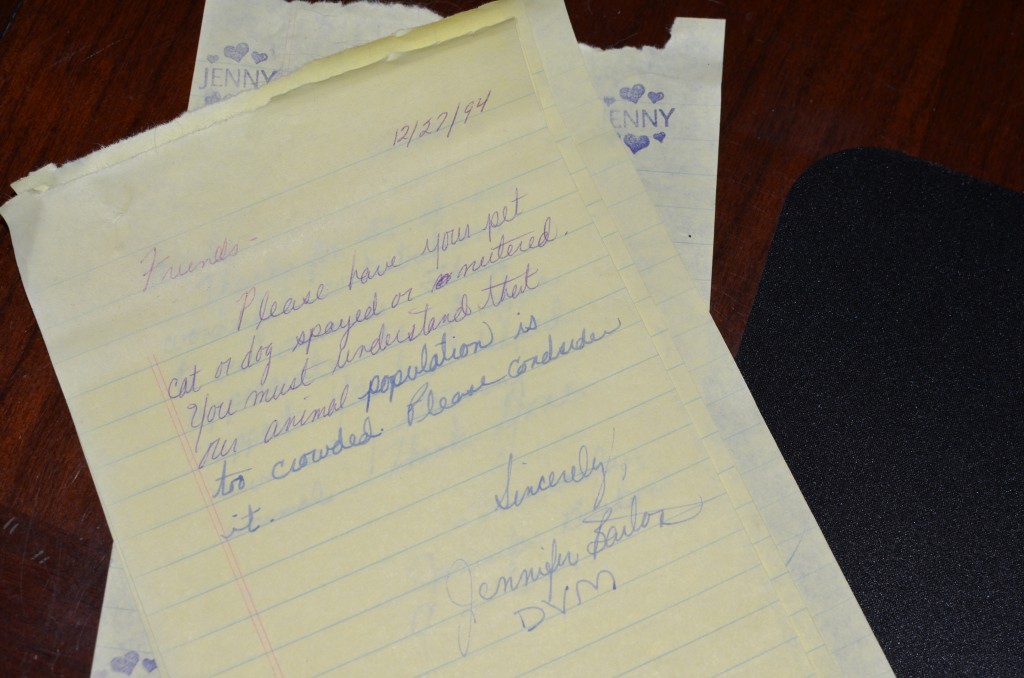 JENNY
ENNY
12/27/94
Friends-
Please have your pet
cat or dog spayed or nutered.
You must understand that
our animal population is
too crowded. Please condsider
it.
Sincerely,
Jennifer
DVM